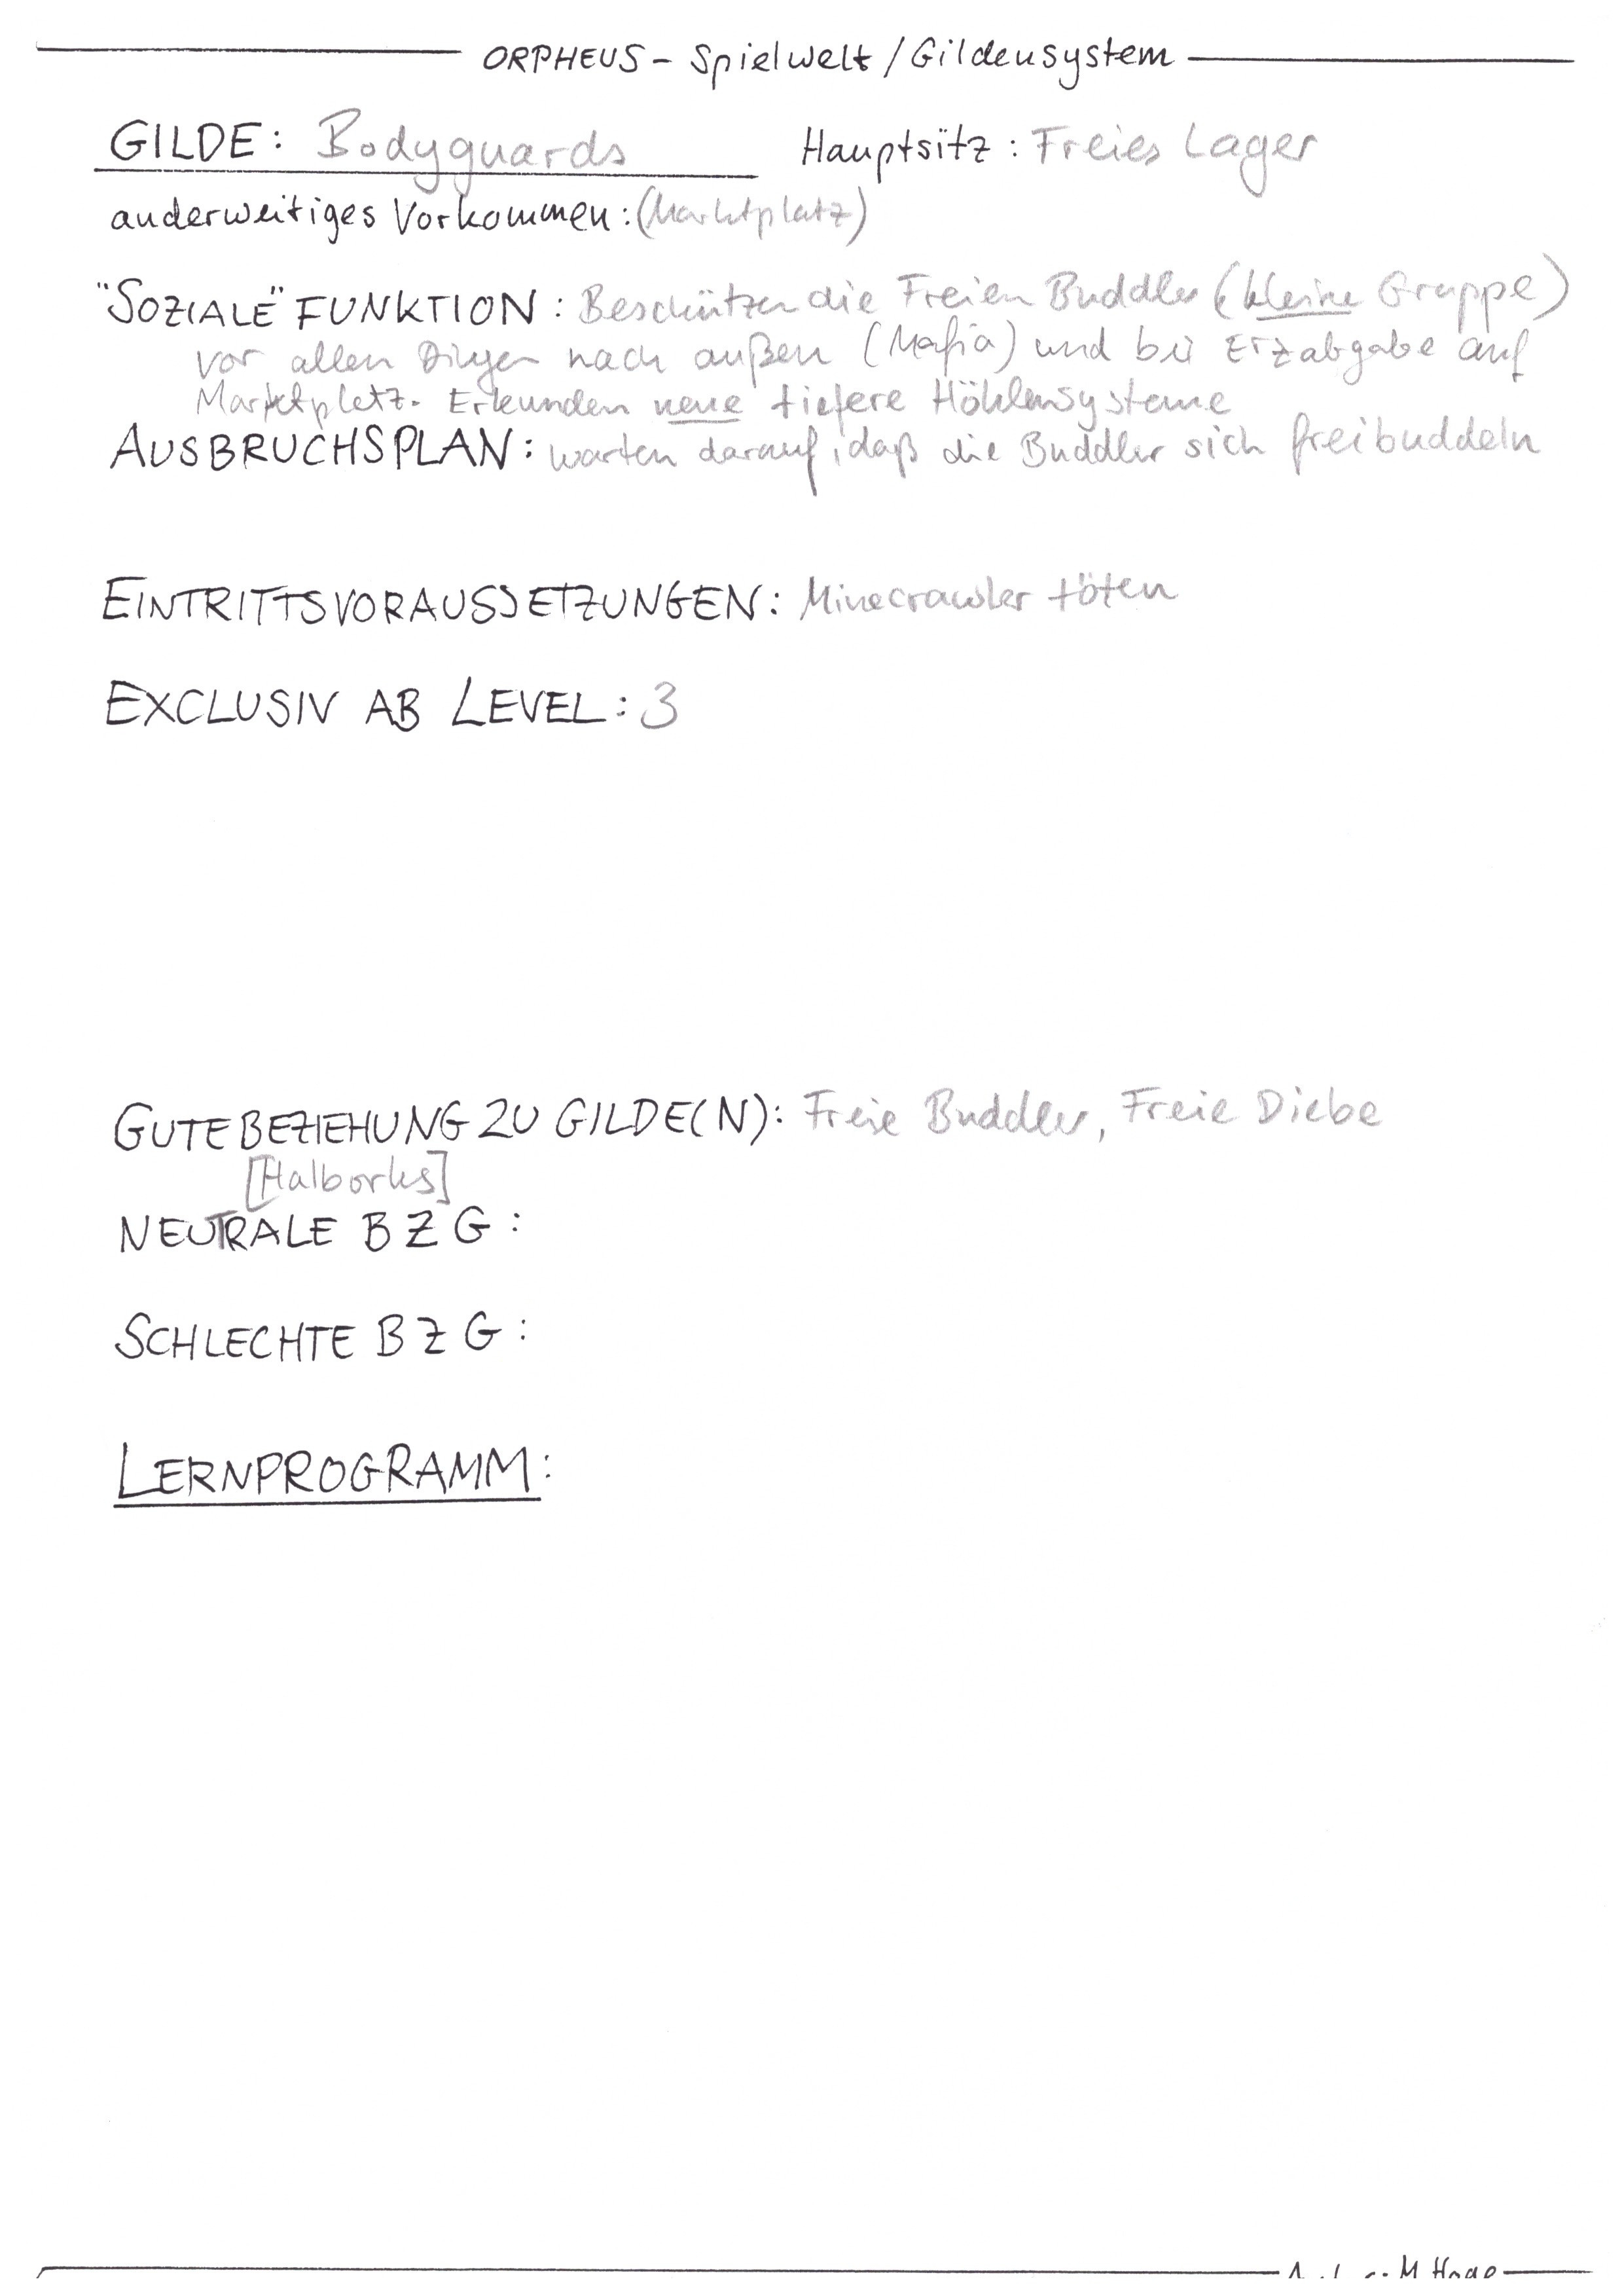 ORPHEUS - Spielwelt / Gildensystem
GILDE: Bodyguards Hauptsitz: Freies Lager
anderweitiges Vorkommen: (Marktplatz)
"SOZIALE" FUNKTION: Beschützen die Freien Buddler (kleine Gruppe)
vor allen Dingen nach außen (Mafia) und bei Erzabgabe auf
Marktplatz. Erkunden neue tiefere Höhlensysteme
AUSBRUCHSPLAN: warten darauf, daß die Buddler sich freibuddeln
EINTRITTSVORAUSSETZUNGEN: Minecrawler töten
EXCLUSIV AB LEVEL: 3
GUTE BEZIEHUNG ZU GILDE(N): Freie Buddler, Freie Diebe
[Halborks]
NEUTRALE BZG:
SCHLECHTE BZG:
LERNPROGRAMM: